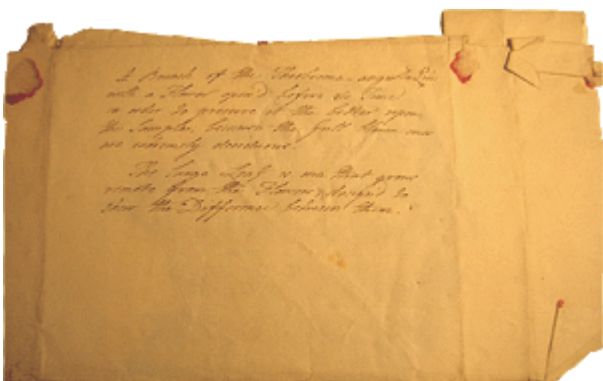 A Branch of the Theobroma angusti
with a Flower open'd before its Time
in order to preserve it the better upon
the Sample, because the full blown ones
are extremely deciduous.
The large Leaf is one that grows
remote from the Flowers, design'd to
shew the Difference between them.